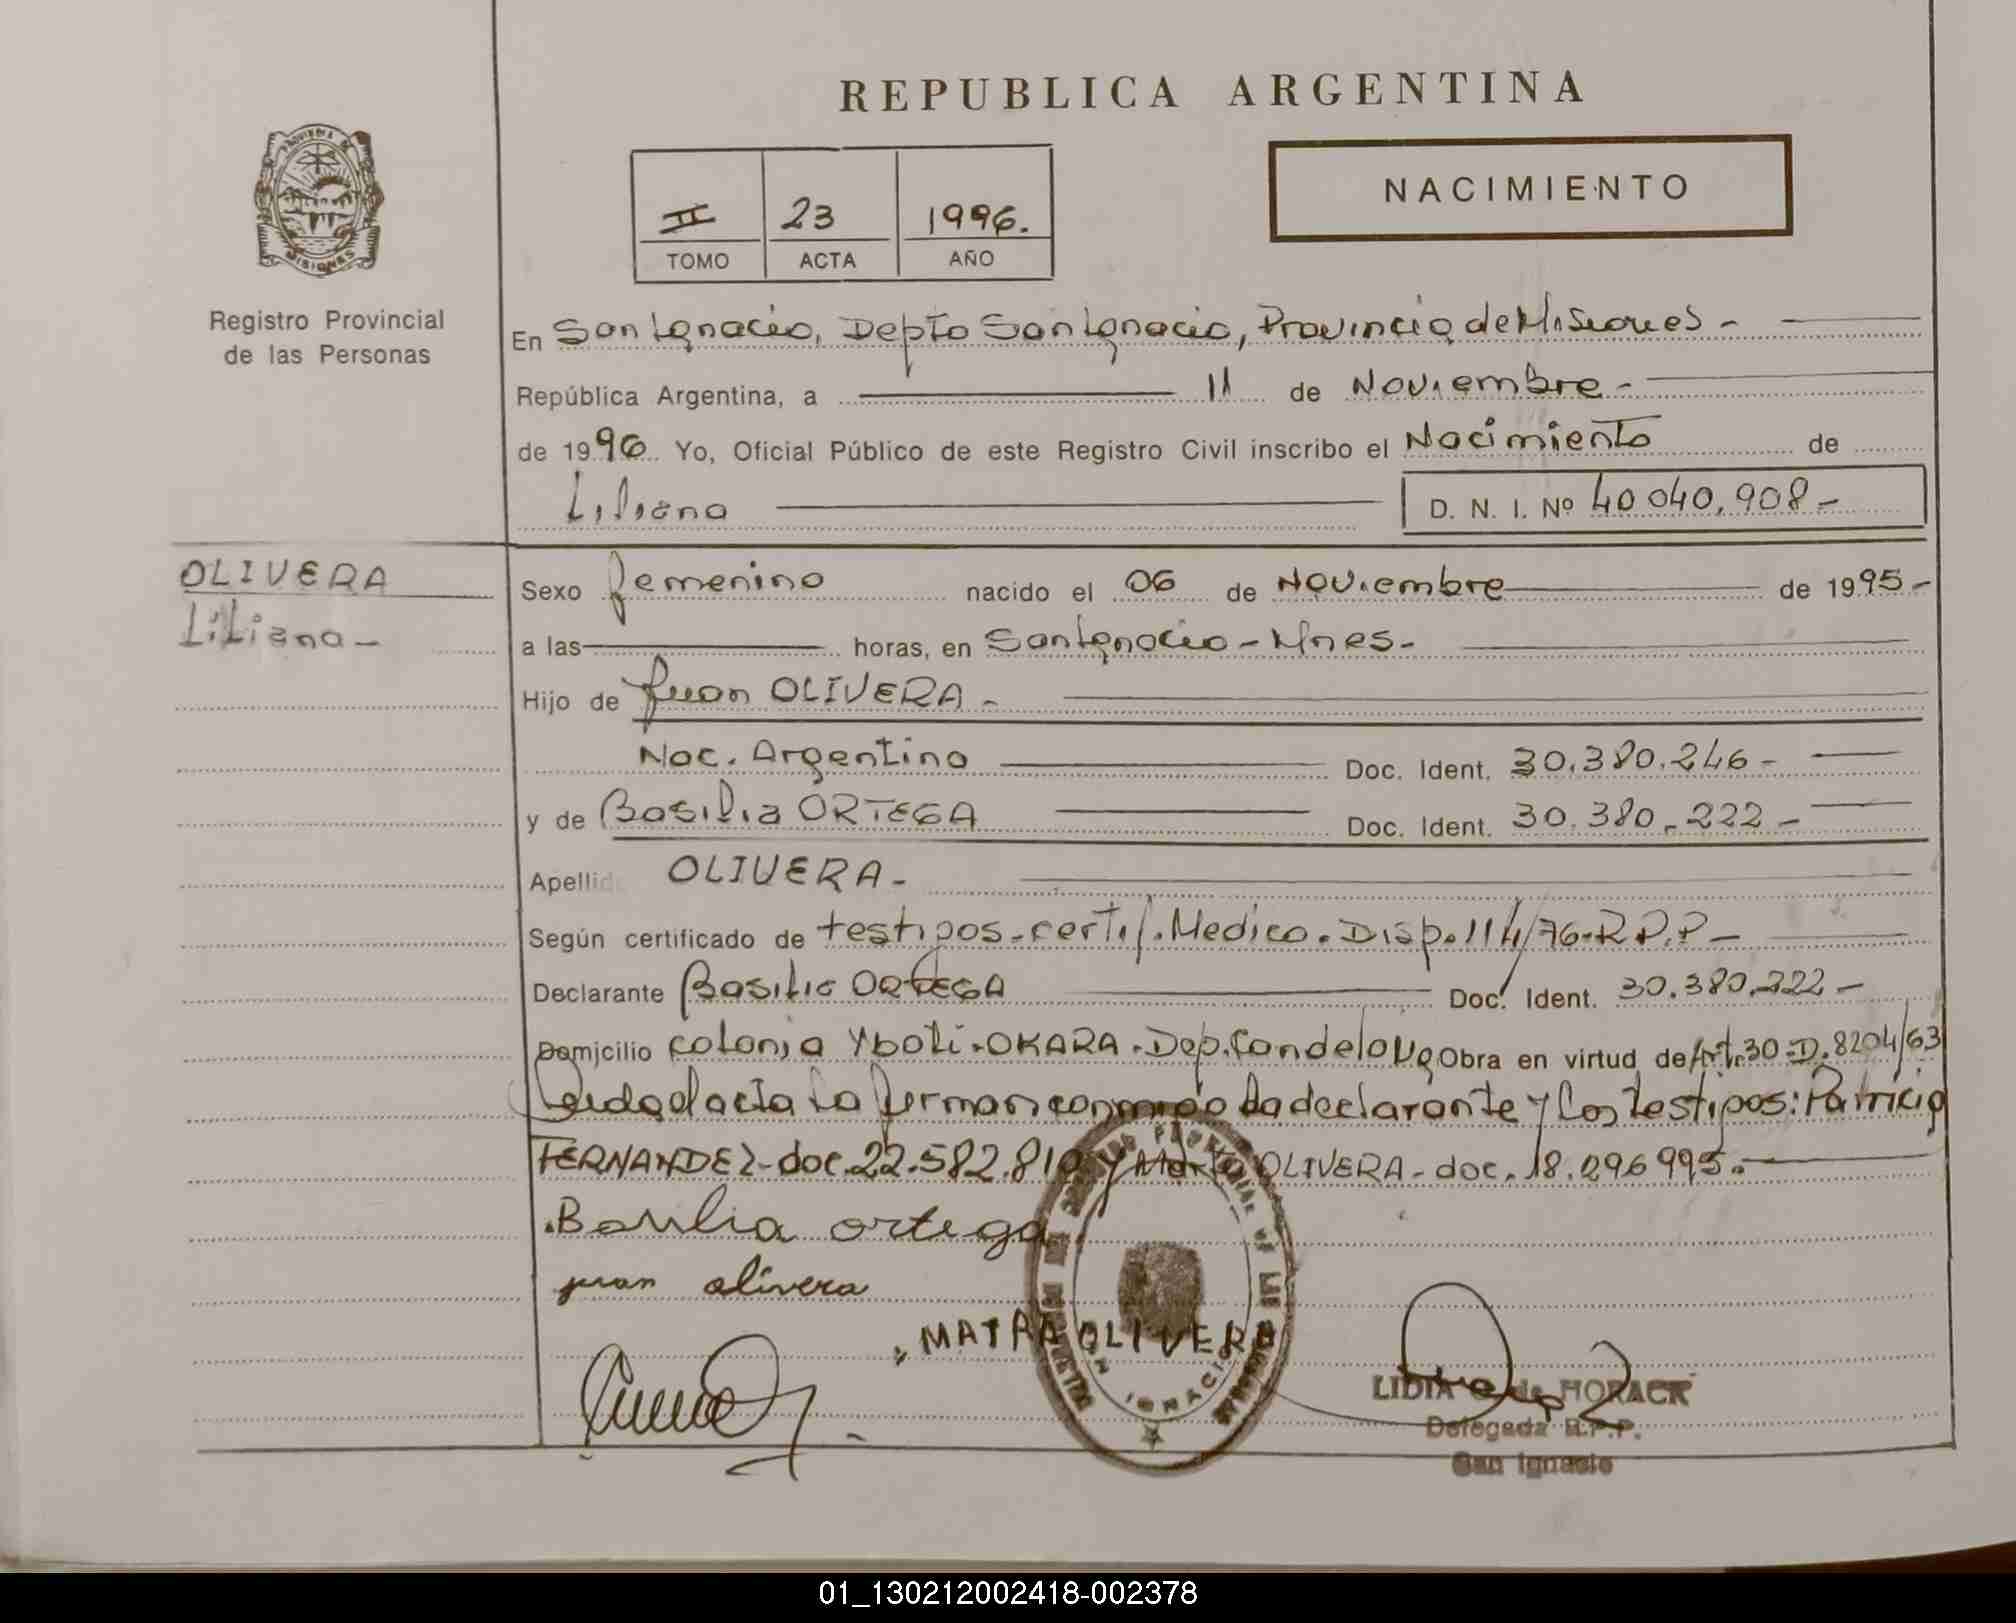 REPUBLICA ARGENTINA
PROVINCIA DE MISIONES
Registro Provincial
de las Personas
II 23 1996.
TOMO ACTA AÑO
NACIMIENTO
En San Ignacio, Depto San Ignacio, Provincia de Misiones -
República Argentina, a 11 de Noviembre -
de 1996 Yo, Oficial Público de este Registro Civil inscribo el Nacimiento de
Liliana D. N. I. Nº 40 040,908 -
OLIVERA
Liliana -
Sexo femenino nacido el 06 de Noviembre de 1995 -
a las horas, en San Ignacio - Mnes -
Hijo de Juan OLIVERA -
Nac. Argentino Doc. Ident. 30.380.246 -
y de Basilia ORTEGA Doc. Ident. 30.380.222 -
Apellido OLIVERA -
Según certificado de testigos - certif. Medico. Disp. 114/76-R.P.P -
Declarante Basilia ORTEGA Doc. Ident. 30.380.222 -
Domicilio colonia Yboti-OKARA - Dep. Candelaria Obra en virtud de Art. 30-D. 8204/63
Leida el acta la firman conmigo la declarante y los testigos: Patricio
FERNANDEZ - doc. 22.582.819 y Marta OLIVERA - doc. 18.296995.-
Basilia ortega
juan olivera
MATRA OLIVERA
LIDIA de HORACK
Delegada R.P.P.
San Ignacio
01_130212002418-002378